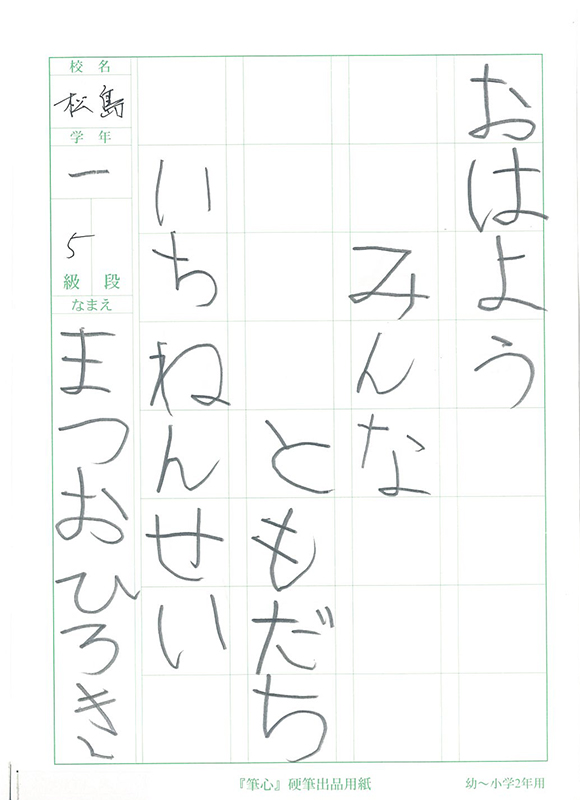 おはよう
みんな
ともだち
いちねんせい
校名
松島
学年
一
5
級段
なまえ
まつおひろき
『筆心』硬筆出品用紙
幼～小学2年用